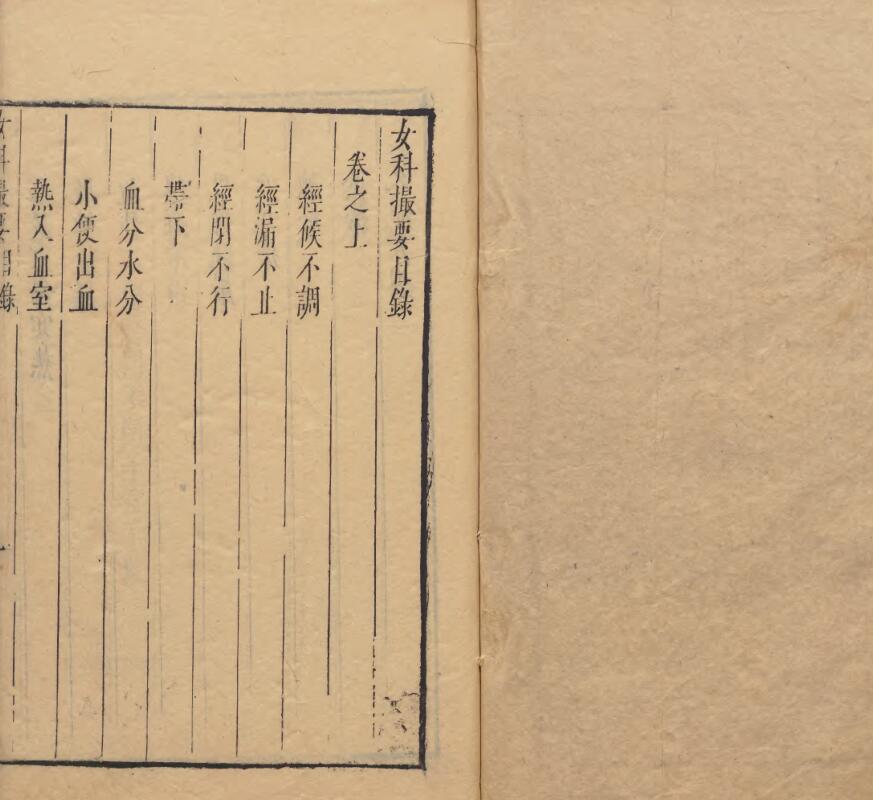 女科撮要目錄
卷之上
經候不調
經漏不止
經閉不行
帶下
血分水分
小便出血
熱入血室
女科撮要目錄